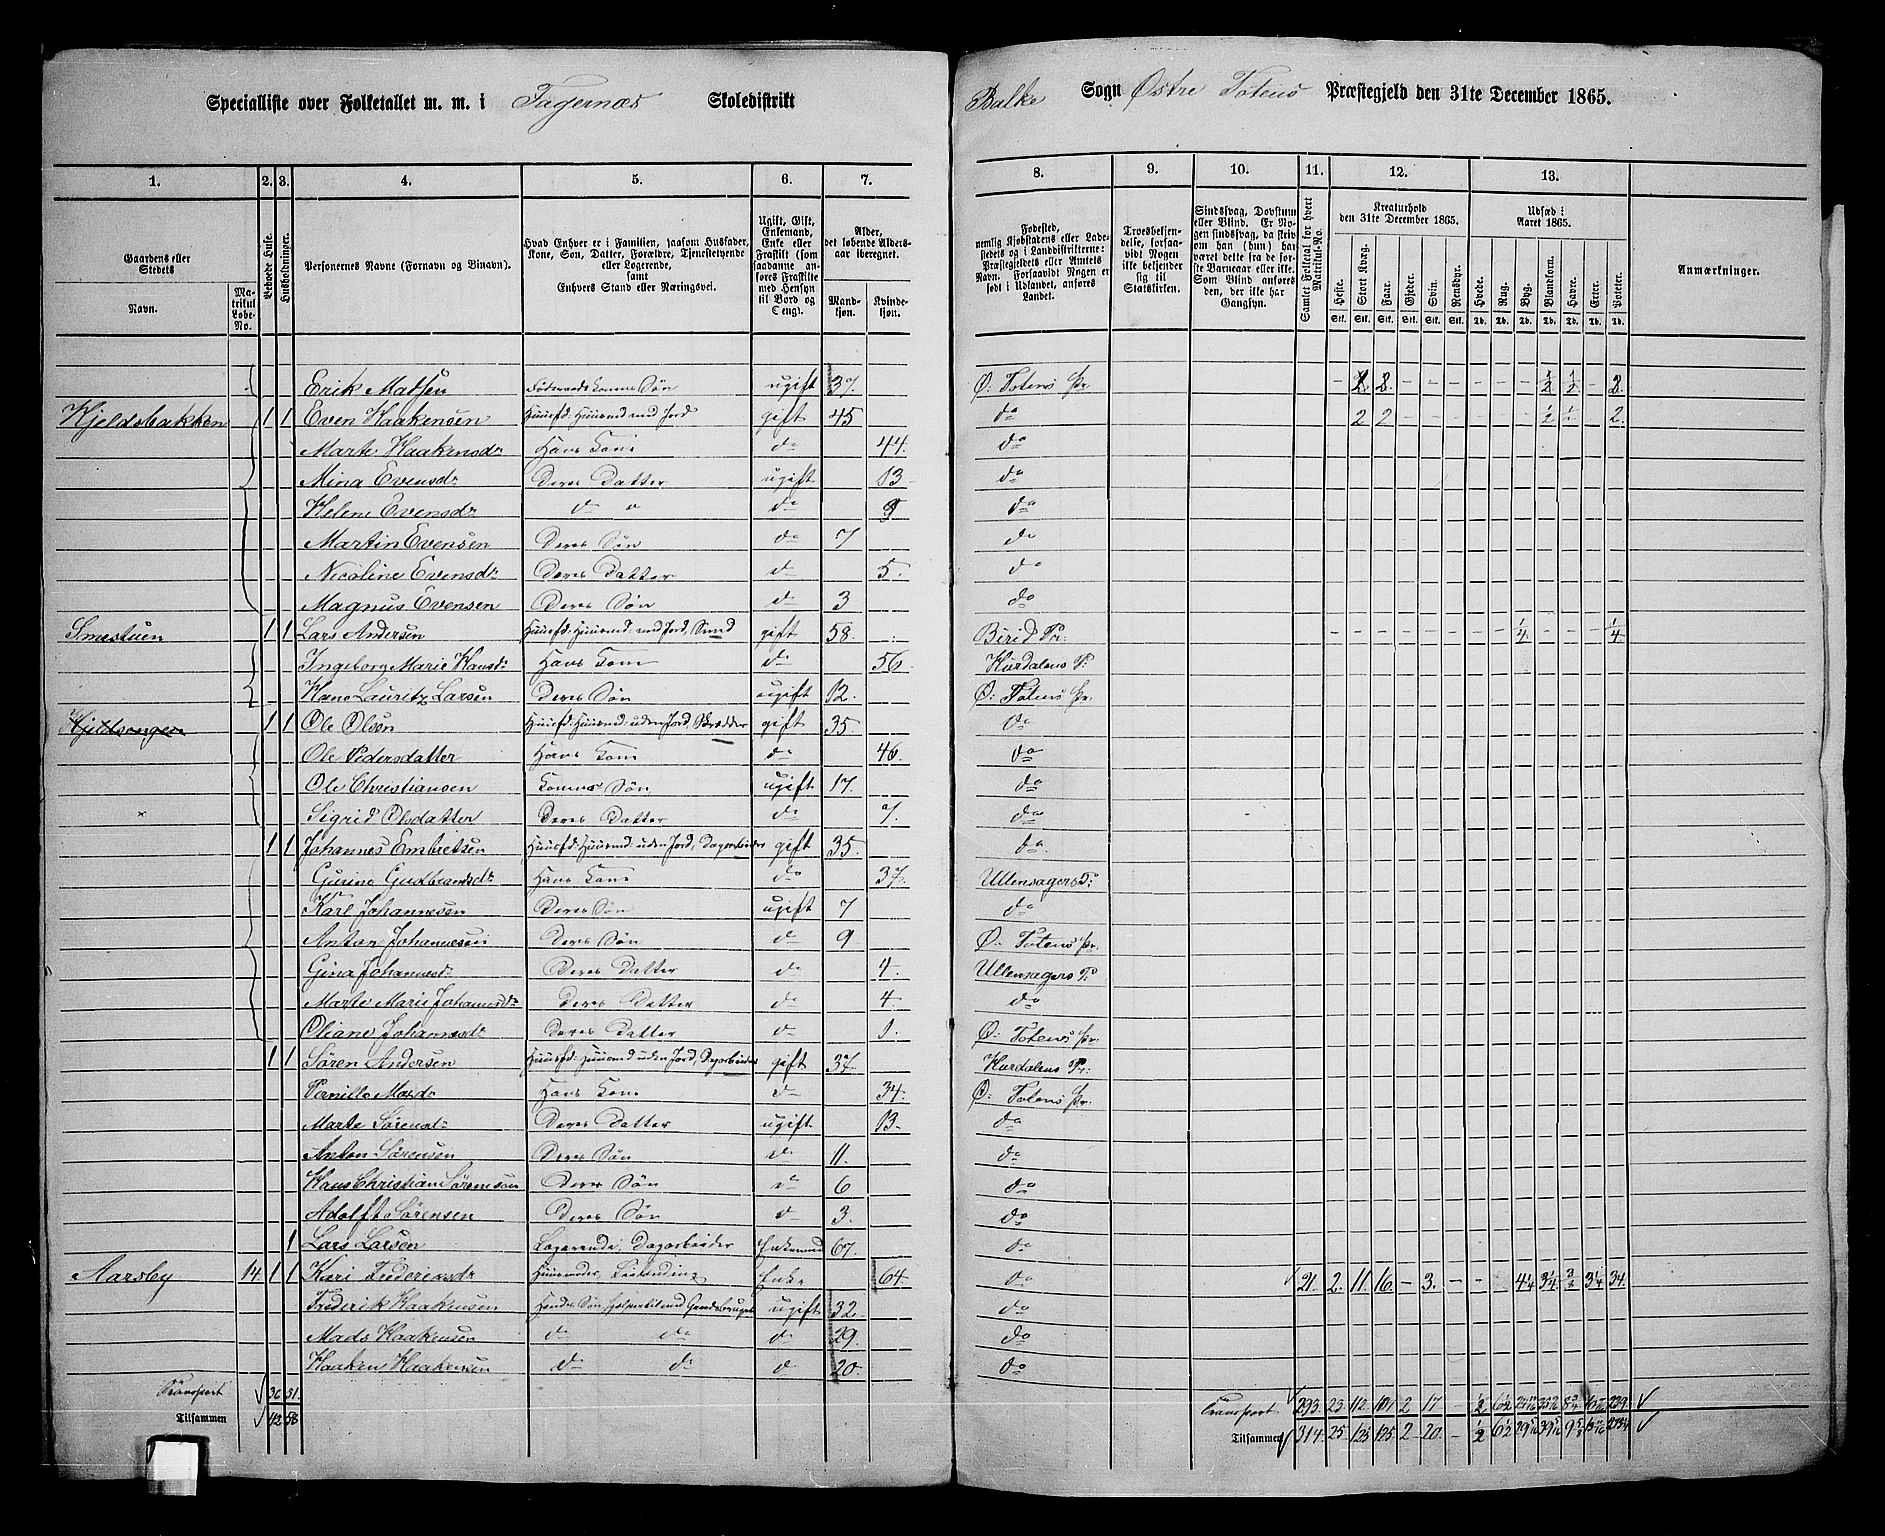 Specialliste over Folketallet m. m. i Fagernæs Skoledistrikt Balke Sogn Østre Totens Præstegjeld den 31te December 1865.
1. 2. 3. 4. 5. 6. 7. 8. 9. 10. 11. 12. 13.
Gaardens eller Stedets
Navn.
Matrikul Løbe-No.
Beboede Huse.
Husholdninger.
Personernes Navne (Fornavn og Binavn).
Hvad Enhver er i Familien, saasom Husfader, Kone, Søn, Datter, Forældre, Tjenestetyende eller Logerende, samt Enhvers Stand eller Næringsvei.
Ugift, Gift, Enkemand, Enke eller Fraskilt (som saadanne anføres Fraskilte med Hensyn til Bord og Seng).
Alder, det løbende Aldersaar iberegnet.
Mandkjøn. Kvindekjøn.
Fødested, nemlig Kjøbstadens eller Ladestedets eller i Landdistrikterne: Præstegjeldets eller Amtets Navn. Forsaavidt Nogen er født i Udlandet, anføres Landet.
Troesbekjendelse, forsaavidt Nogen ikke bekjender sig til Statskirken.
Sindssvag, Døvstum eller Blind. Er Nogen sindssvag, da skrives om han (hun) har været dette fra de første Barneaar eller ikke. Som Blind anføres den, der ikke har Gangsyn.
Samlet Folketal for hvert Matrikul-No.
Kreaturhold den 31te December 1865.
Heste. Stort Kvæg. Faar. Gjeder. Svin. Rensdyr.
Udsæd i Aaret 1865.
Hvede. Rug. Byg. Blandkorn. Havre. Erter. Poteter.
Anmærkninger.
Erik Madsen Føderaadskonens Søn ugift 37 Ø. Totens Pr. - 2 2 - - - - - - 1/2 1/2 - 2.
Kjeldsbakken 1 1 Even Haakensen Huusfd: Huusmd med Jord gift 45 do 2 2 - - - - - - 1/2 1/2 - 2.
Marte Haakensdr Hans Kone do 44. do
Mina Evensdr Deres Datter ugift 13 do
Helene Evensdr do do 9 do
Martin Evensen Deres Søn do 7 do
Nicoline Evensdr Deres Datter do 5. do
Magnus Evensen Deres Søn do 3 do
Smestuen 1 1 Lars Andersen Huusfd: Huusmd: med Jord, Smed gift 58. Birid Pr: - - - - - - - - 1/4 - - - 1/4
Ingeborg Marie Hansdr Hans Kone do 56 Hurdalens P:
Hans Lauritz Larsen Deres Søn ugift 12. Ø: Totens Pr.
Kjeldsengen 1 1 Ole Olsen Huusfd: Huusmd: uden Jord, Skrædder gift 35 do
Ole Pedersdatter Hans Kone do 46. do
Ole Christiansen Konens Søn ugift 17. do
Sigrid Olsdatter Deres Datter do 7. do
1 1 Johannes Embretsen Huusfd: Huusmd: uden Jord, Dagarbeider gift 35. do
Gurine Gudbrandsdr Hans Kone do 37. Ullensagers P:
Karl Johannesen Deres Søn ugift 7 do
Anton Johannesen Deres Søn do 9 Ø: Totens Pr.
Gina Johannesdr Deres Datter do 4. Ullensagers P:
Marte Marie Johannesdr Deres Datter do 4. do
Oliane Johannesdr Deres Datter do 1. Ø: Totens Pr.
1 1 Søren Andersen Huusfd: Huusmd uden Jord, Dagarbeider gift 37 Hurdalens Pr:
Pernille Madsdr Hans Kone do 34. Ø: Totens Pr.
Marte Sørensdr Deres Datter ugift 13. do
Anton Sørensen Deres Søn do 11. do
Hans Christian Sørensen Deres Søn do 6 do
Adolf Sørensen Deres Søn do 3. do
1 Lars Larsen Logerende, Dagarbeider Enkemd 67. do
Aarsby 14 1 1 Kari Frederiksdr Huusmoder, Selveier Enke 64 do 21. 2. 11. 16. - 3. - - 4 1/4 3 1/4 3/8 3 1/4 34.
Frederik Haakensen Hendes Søn hjelper til med Gaardsbruget ugift 32 do
Mads Haakensen do do do 29. do
Haaken Haakensen do do do 20. do
Transport 36 51. Transport 293. 23 112. 109 2 17 -
Tilsammen 42 58 Tilsammen 314. 25 123 125 2 20. -